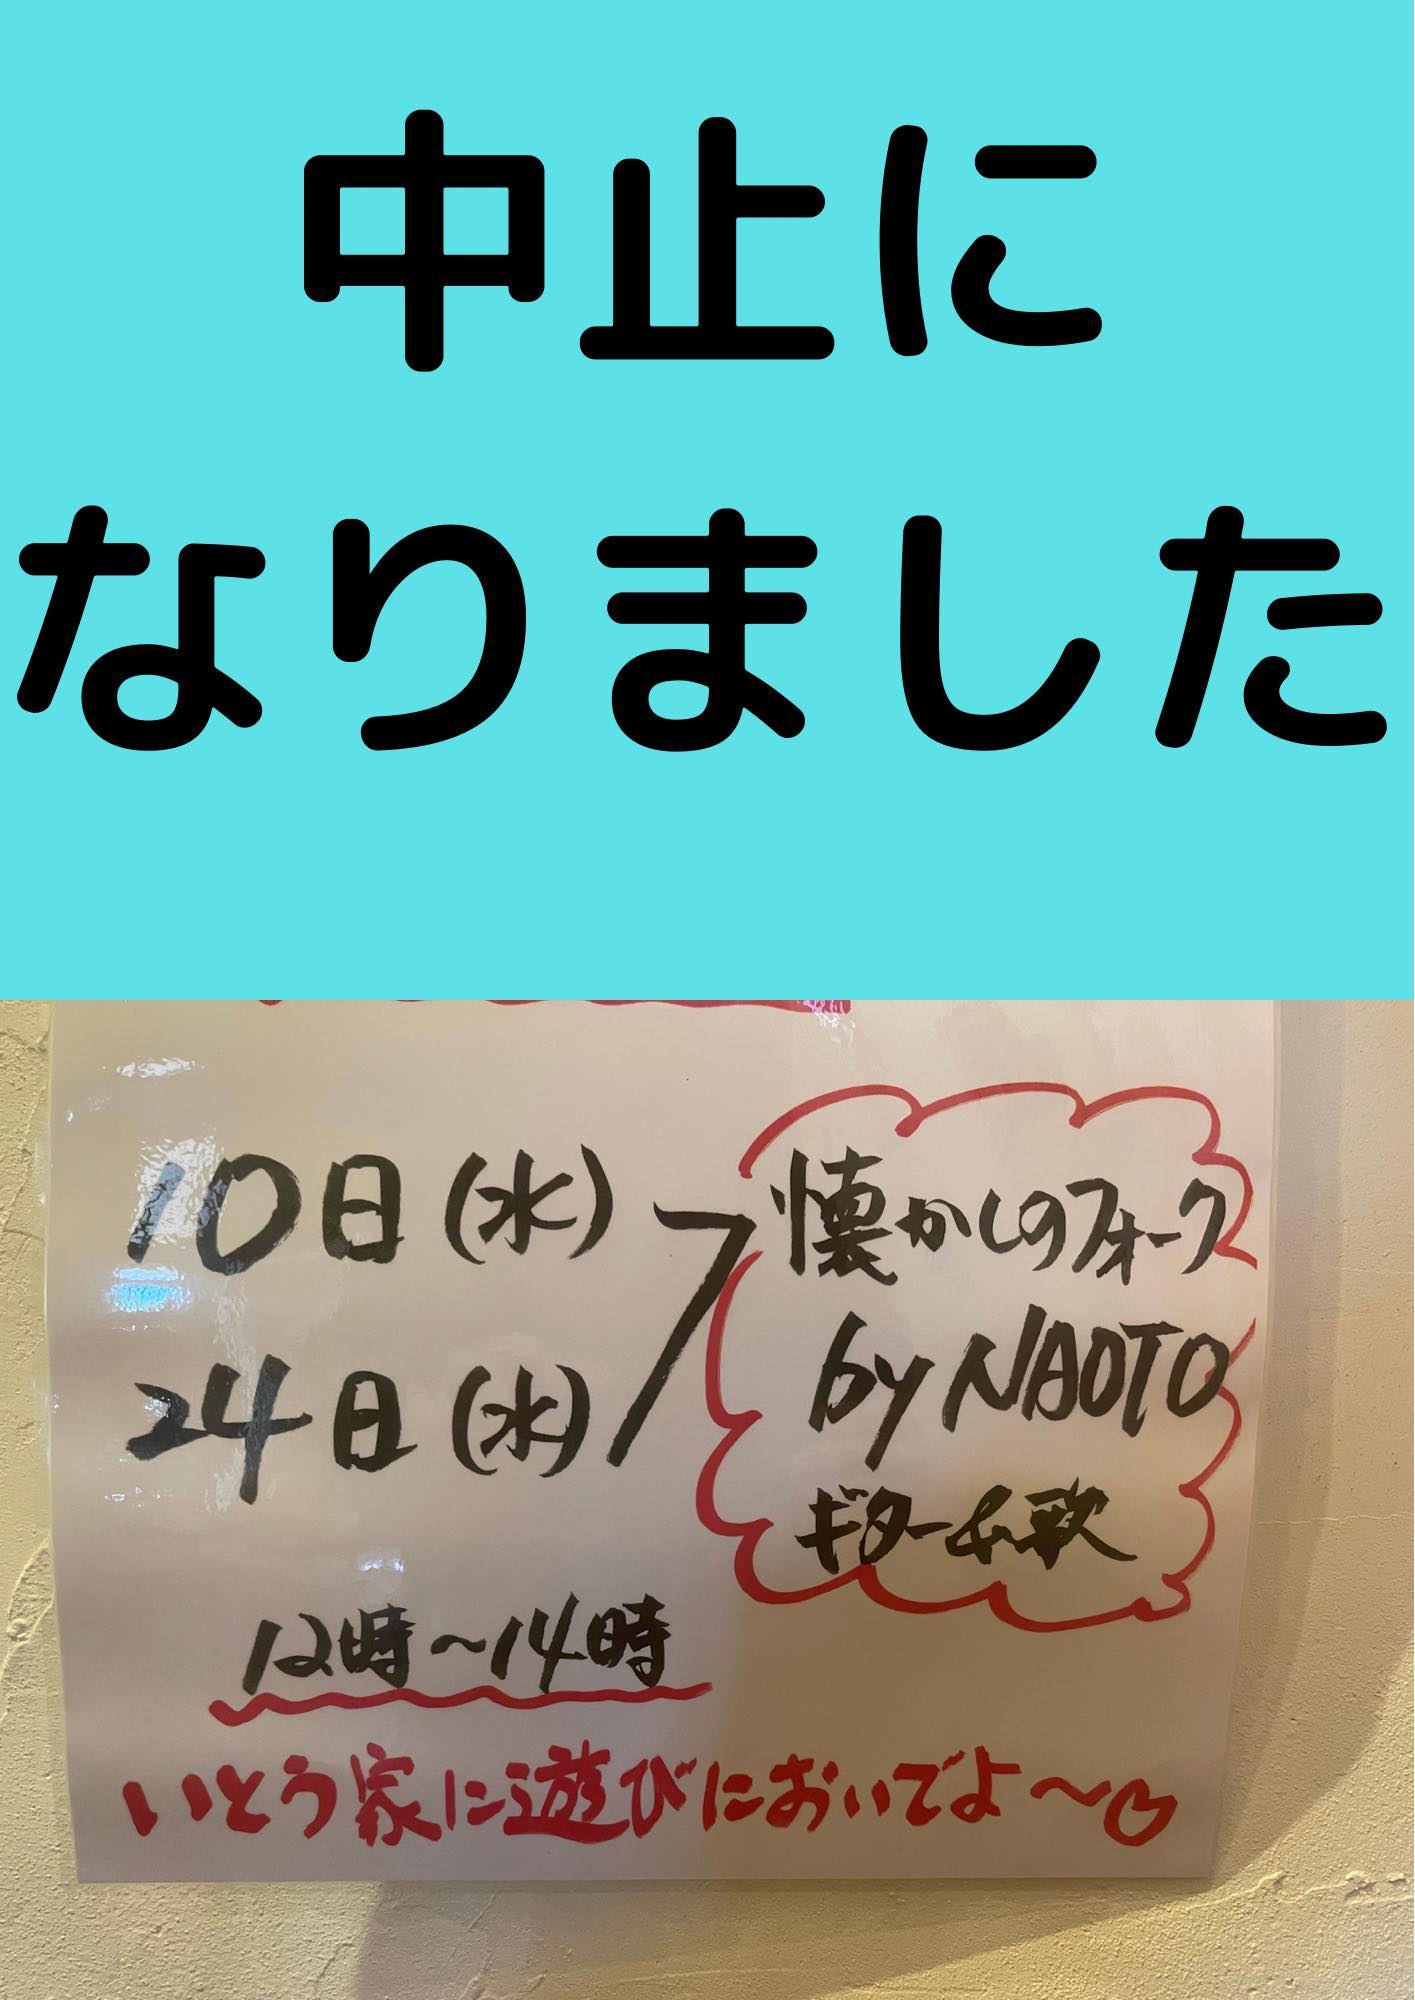 中止に
なりました
10日(水)
24日(水)
懐かしのフォーク
by NAOTO
ギター&歌
12時~14時
いとう家に遊びにおいでよ~